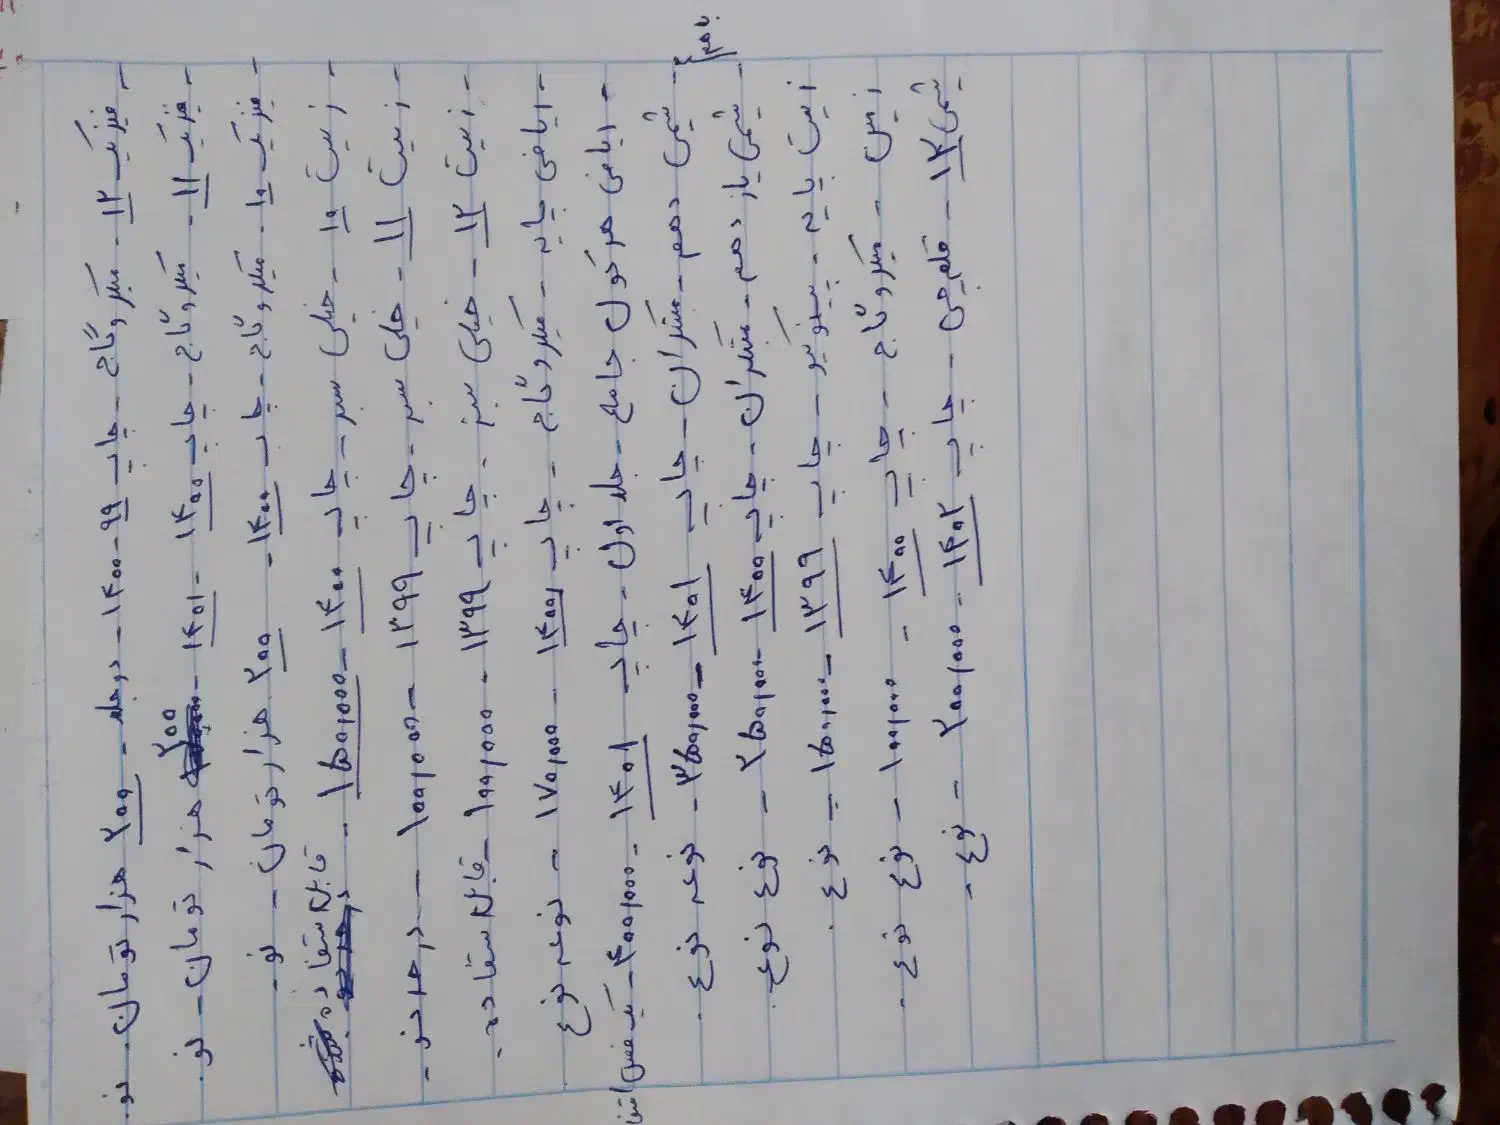 - فیزیک ۱۲ - میکروگاج - چاپ ۹۹ - ۱۴۰۰ - دو جلد - ۲۰۰ هزار تومان. نو.
- فیزیک ۱۱ - میکروگاج - چاپ ۱۴۰۰ - ۱۴۰۱ - ۲۰۰ هزار تومان - نو.
- فیزیک ۱۰ - میکروگاج - چاپ ۱۴۰۰ - ۲۰۰ هزار تومان - نو -
- زیست ۱۰ - خیلی سبز - چاپ ۱۴۰۰ - ۱۵۰,۰۰۰ - قابل استفاده
- زیست ۱۱ - خیلی سبز - چاپ ۱۳۹۹ - ۱۰۰,۰۰۰ - در حد نو -
- زیست ۱۲ - خیلی سبز - چاپ ۱۳۹۹ - ۱۰۰,۰۰۰ - قابل استفاده -
- ریاضی پایه - میکروگاج - چاپ ۱۴۰۰ - ۱۷۰,۰۰۰ - نوعه نوع
- ریاضی هرکول جامع - جلد اول - چاپ ۱۴۰۱ - ۴۰۰,۰۰۰ - یک فصل
- شیمی دهم - مبتکران - چاپ ۱۴۰۱ - ۳۵۰,۰۰۰ - نوعه نوع.
باهم
- شیمی یازدهم - مبتکران - چاپ ۱۴۰۰ - ۲۵۰,۰۰۰ - نوع نوع.
زیست پایه - چاپ ۱۳۹۹ - ۱۵۰,۰۰۰ - نوع.
زیس - میکروگاج - چاپ ۱۴۰۰ - ۱۰۰,۰۰۰ - نوع نوع.
- شیمی ۱۲ - قلم‌چی - چاپ ۱۴۰۲ - ۲۰۰,۰۰۰ - نوع -